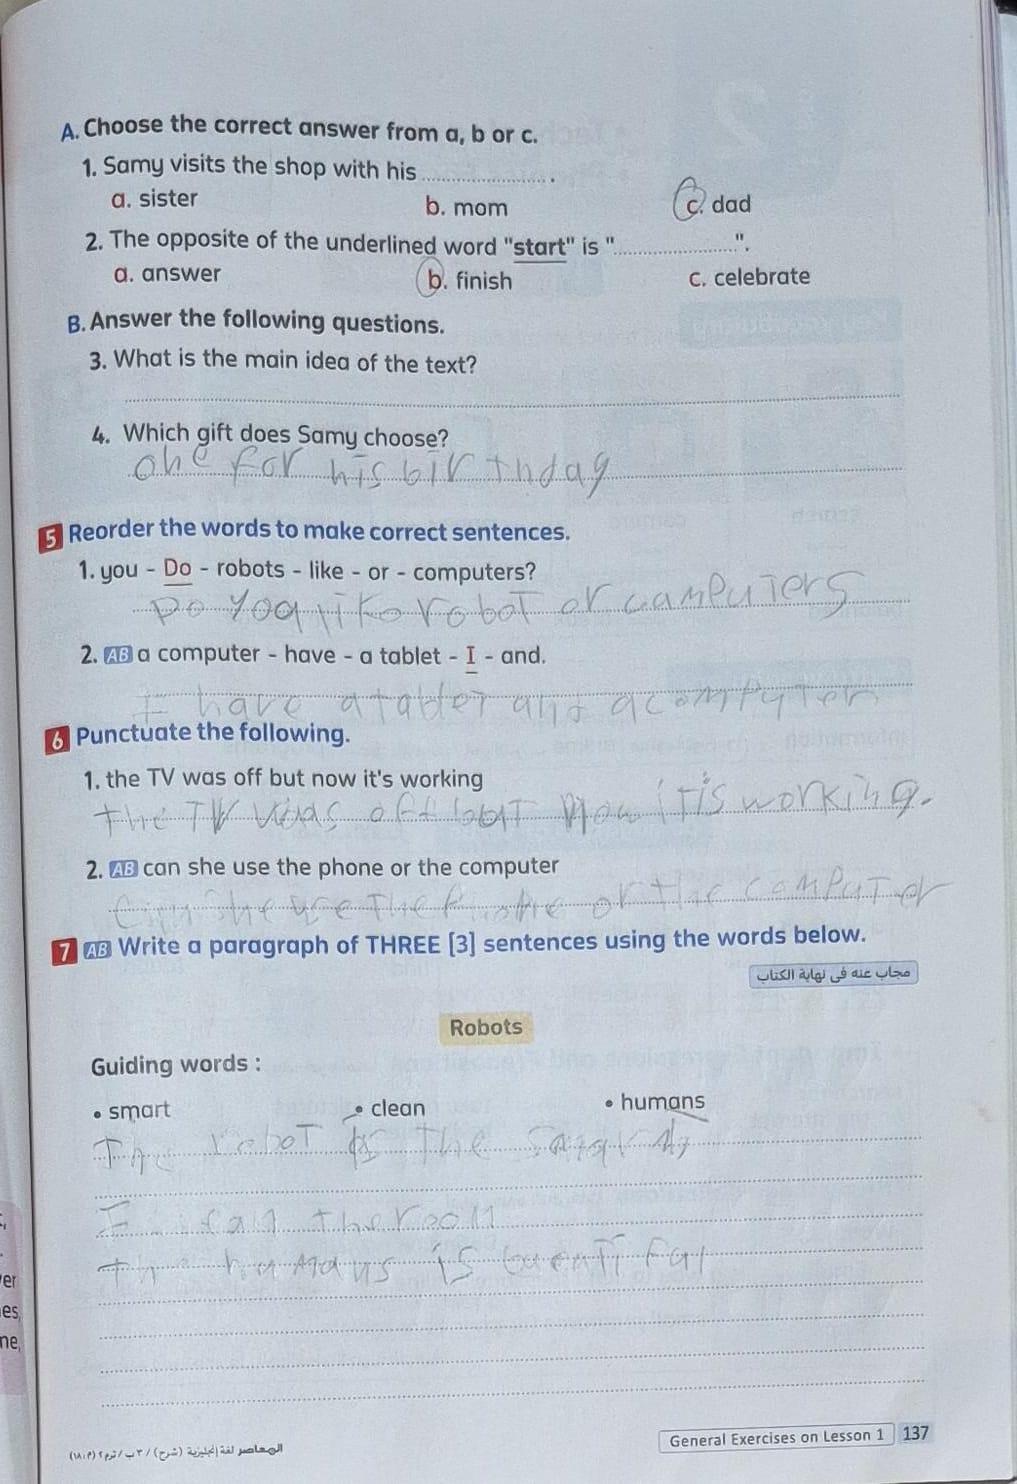 A. Choose the correct answer from a, b or c.
1. Samy visits the shop with his .................... .
a. sister b. mom c. dad
2. The opposite of the underlined word "start" is "....................".
a. answer b. finish c. celebrate
B. Answer the following questions.
3. What is the main idea of the text?
4. Which gift does Samy choose?
one for his birthday
5 Reorder the words to make correct sentences.
1. you - Do - robots - like - or - computers?
Do you like robot or camputers
2. AB a computer - have - a tablet - I - and.
I have a tablet and a computer
6 Punctuate the following.
1. the TV was off but now it's working
the TV was off but now it is working.
2. AB can she use the phone or the computer
Can she use The Phone or the computer
7 AB Write a paragraph of THREE [3] sentences using the words below.
مجاب عنه فى نهاية الكتاب
Robots
Guiding words :
• smart • clean • humans
The robot is the
I the room
the humans is
er
es,
ne,
General Exercises on Lesson 1 137
المعاصر لغة إنجليزية (شرح) / ٣ ب / ترم٢ (م : ١٨)